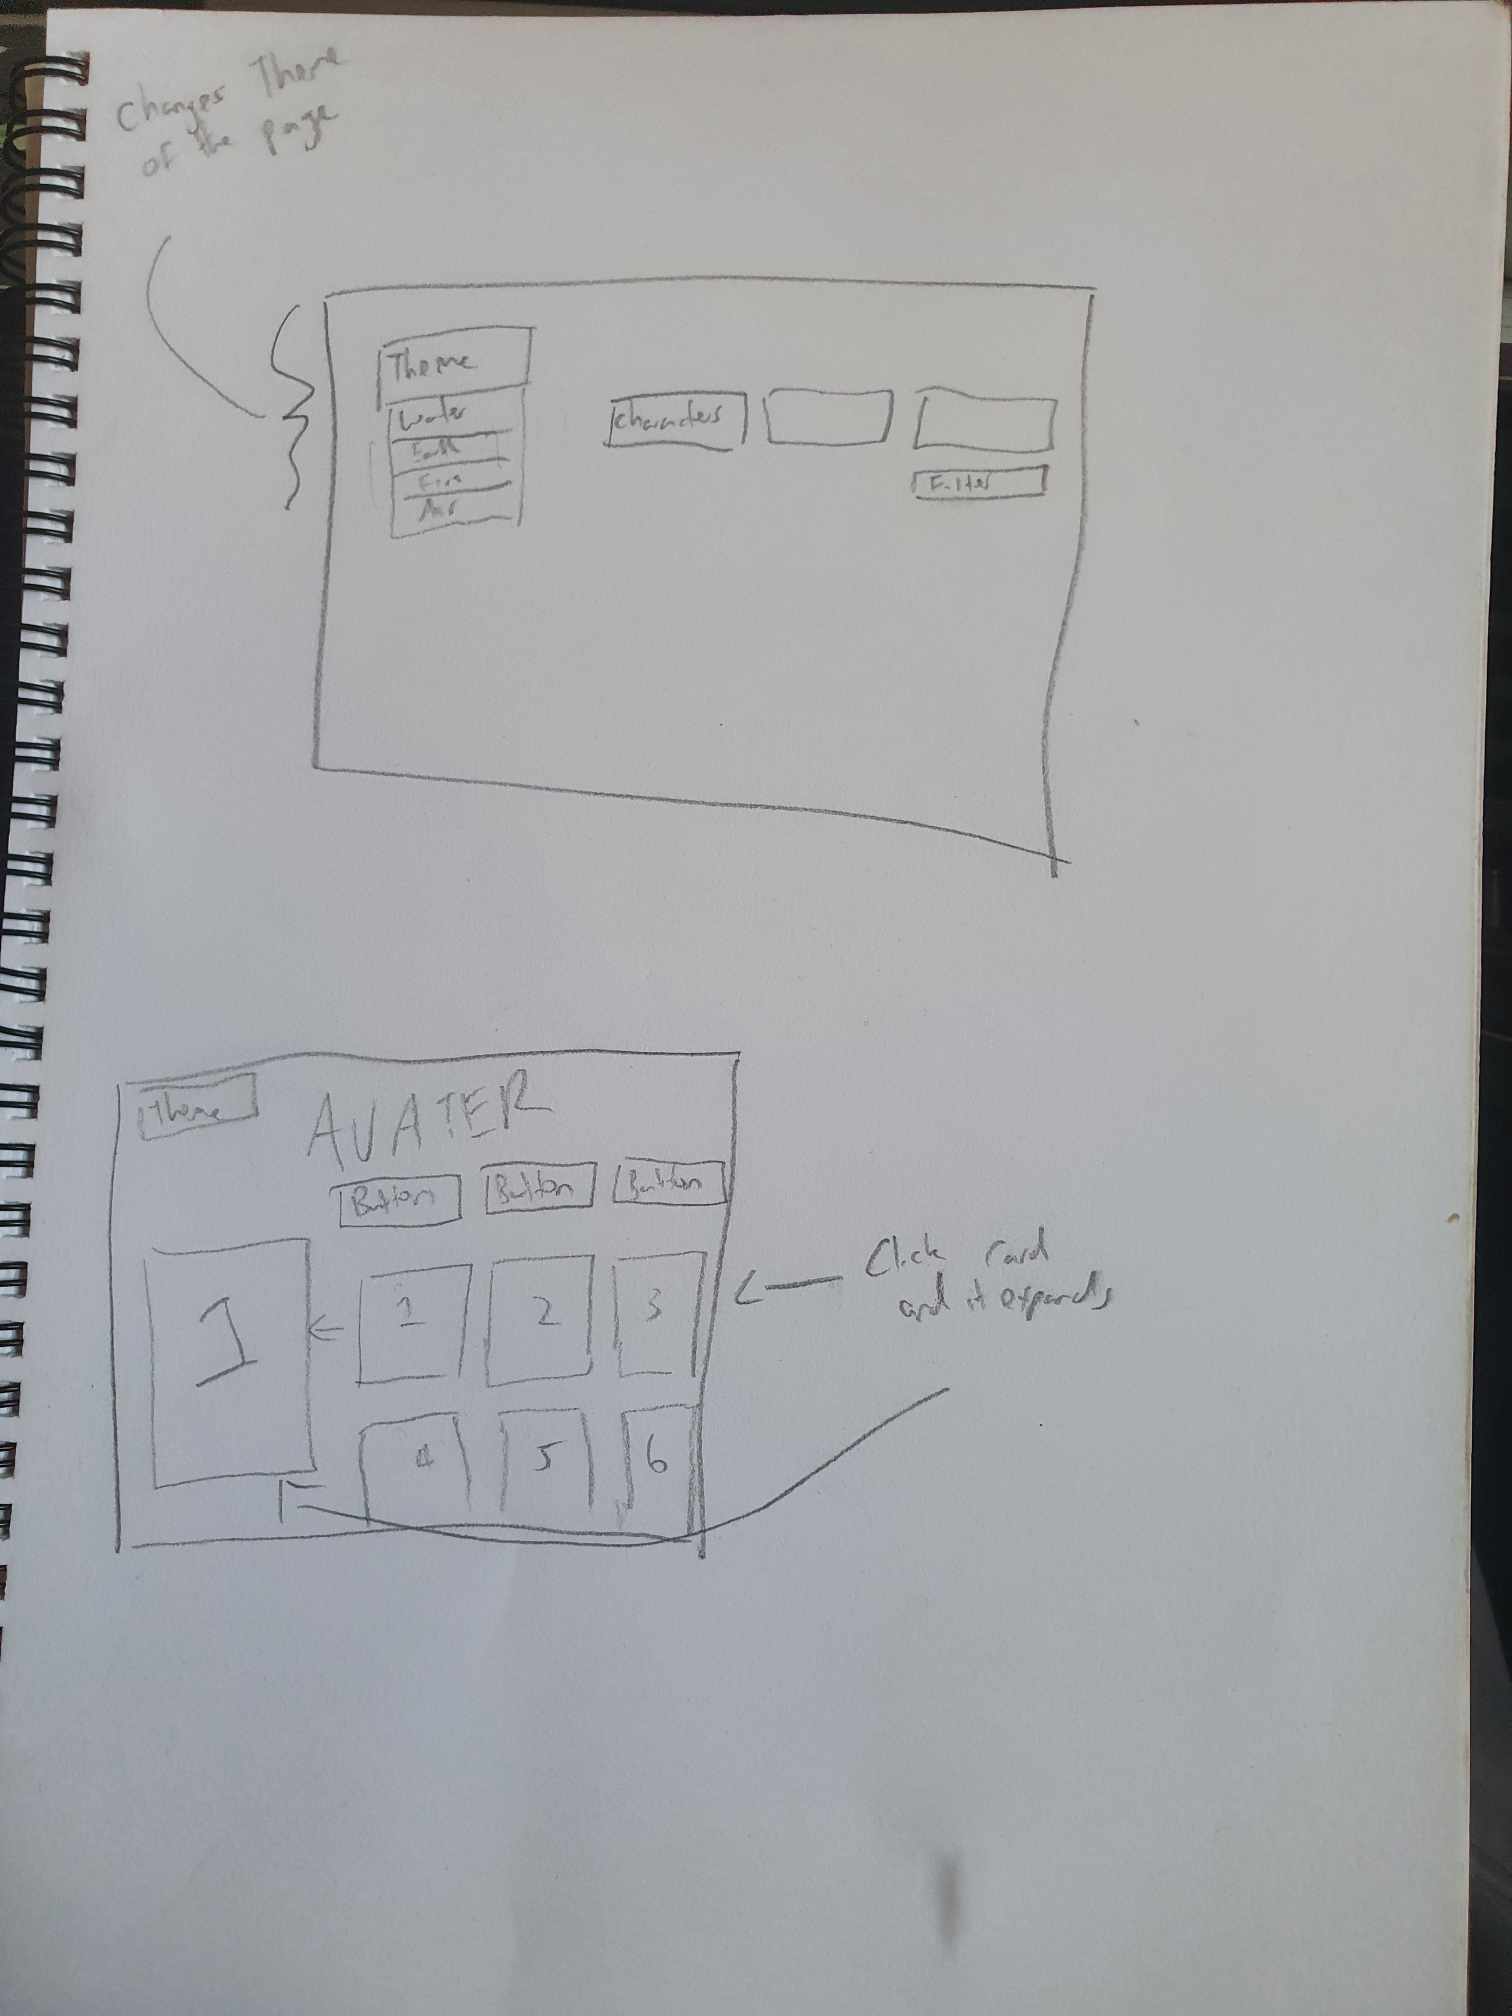 Changes Theme
of the page
Theme
Water
Earth
Fire
Air
Characters
Filter
Theme
AVATER
Button
Button
Button
1
1
2
3
4
5
6
Click card
and it expands